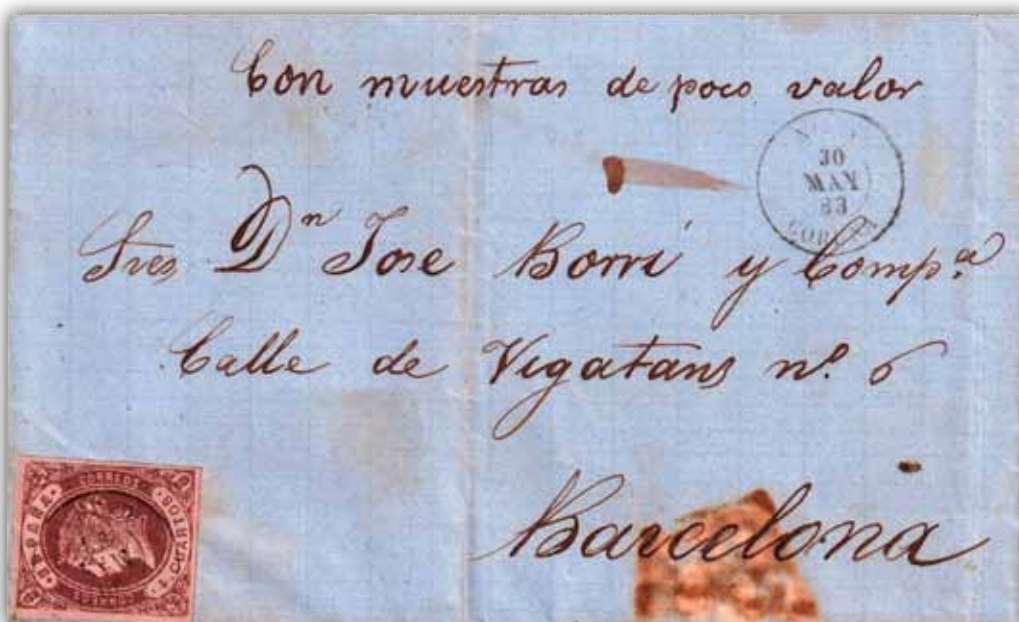 Con muestras de poco valor
30
MAY
63
Sres Dn Jose Borri y Compª
Calle de Vigatans nº 6
Barcelona
CORREOS
4 CUARTOS